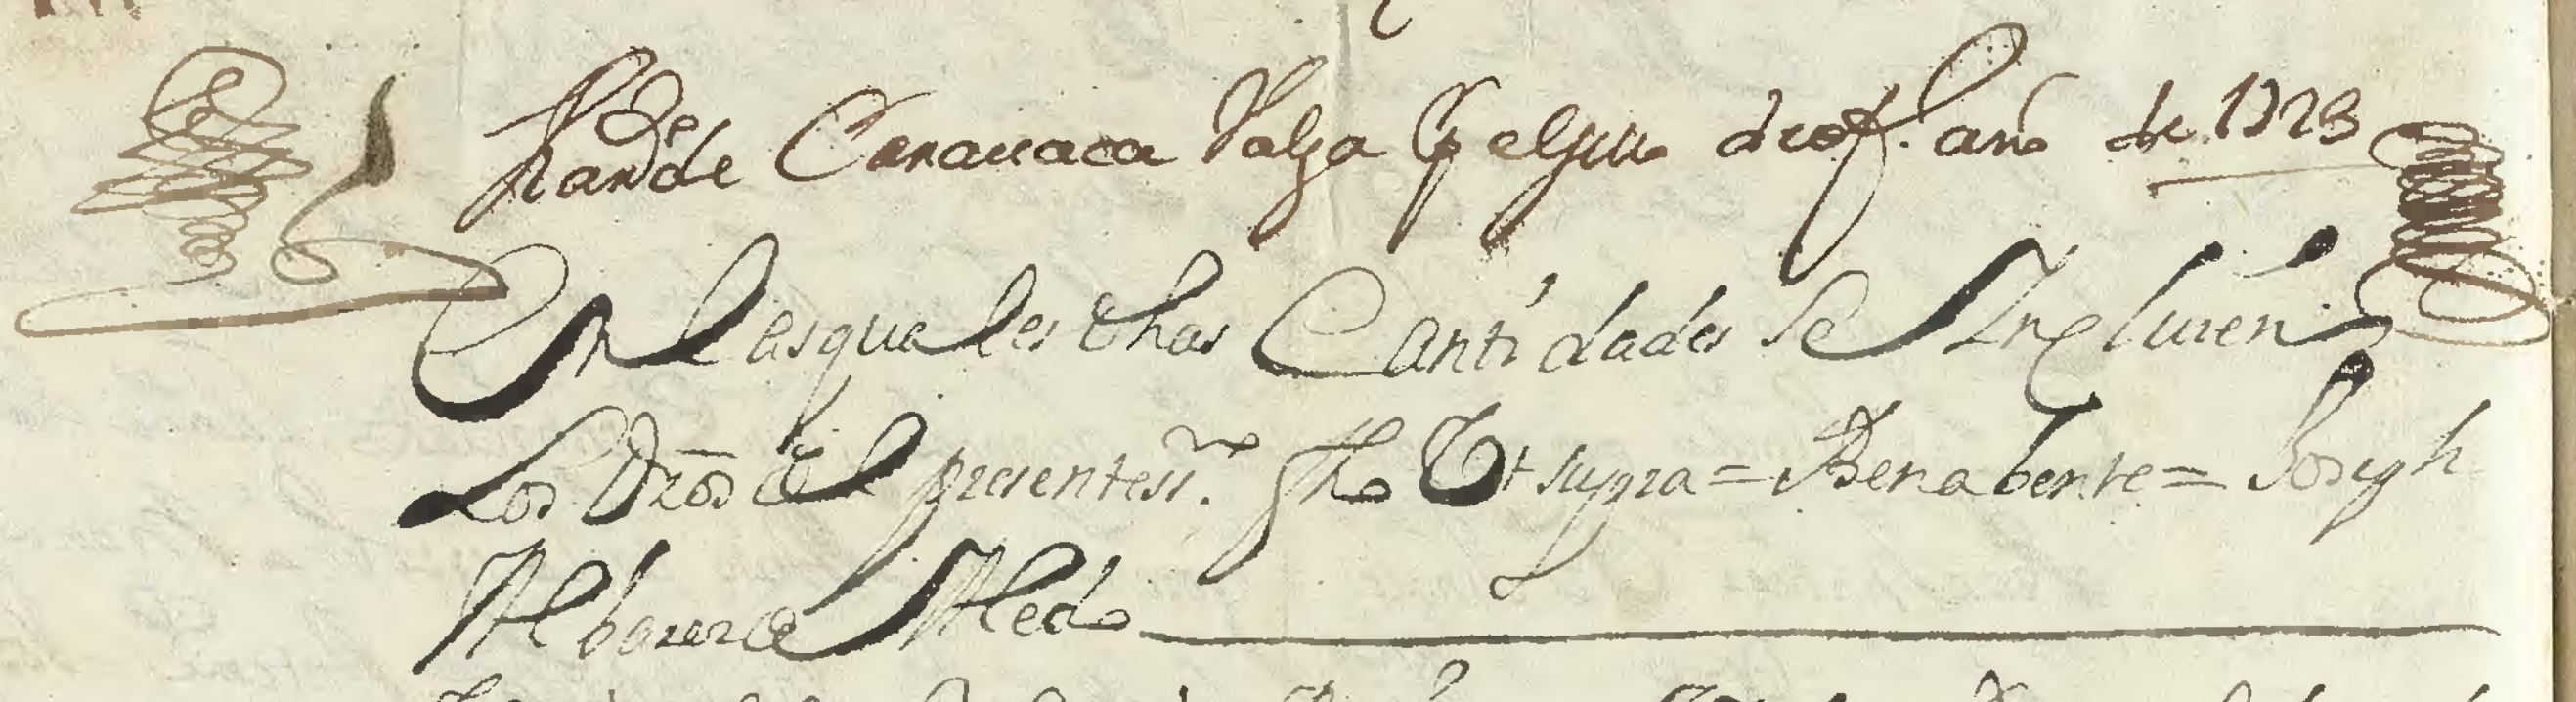 de Carauaca Valga para el sello de of.º año de 1723
En las quales dhas Cantidades se Yncluien
Los Dros del presente ss.no fho Ut supra = Benabente = Joseph
Albarez de Aledo